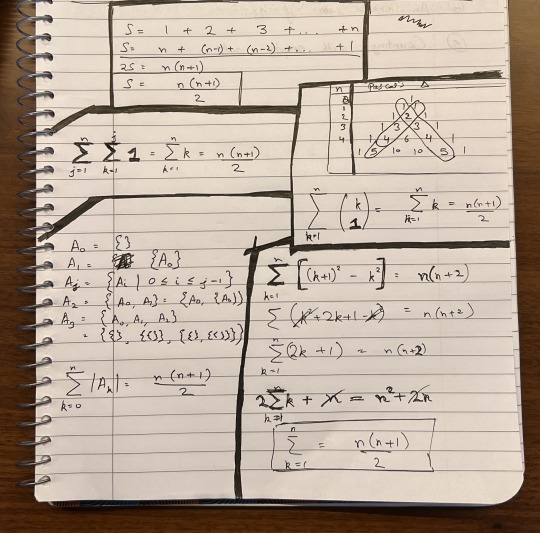 S = 1 + 2 + 3 + ... +n
S = n + (n-1) + (n-2) + ... + 1
2S = n(n+1)
S = n(n+1)/2
n Pascal's Δ
0 1
1 1 1
2 1 2 1
3 1 3 3 1
4 1 4 6 4 1
1 5 10 10 5 1
∑_{j=1}^{n} ∑_{k=1}^{j} 1 = ∑_{k=1}^{n} k = n(n+1)/2
∑_{k=1}^{n} (k 1) = ∑_{k=1}^{n} k = n(n+1)/2
A₀ = {}
A₁ = {A₀}
Aⱼ = {Aᵢ | 0 ≤ i ≤ j-1}
A₂ = {A₀, A₁} = {A₀, {A₀}}
A₃ = {A₀, A₁, A₂}
= {{}, {{}}, {{}, {{}}}}
∑_{k=0}^{n} |Aₖ| = n(n+1)/2
∑_{k=1}^{n} [(k+1)² - k²] = n(n+2)
∑ (k² + 2k + 1 - k²) = n(n+2)
∑_{k=1}^{n} (2k + 1) = n(n+2)
2∑_{k=1}^{n} k + n = n² + 2n
∑_{k=1}^{n} = n(n+1)/2